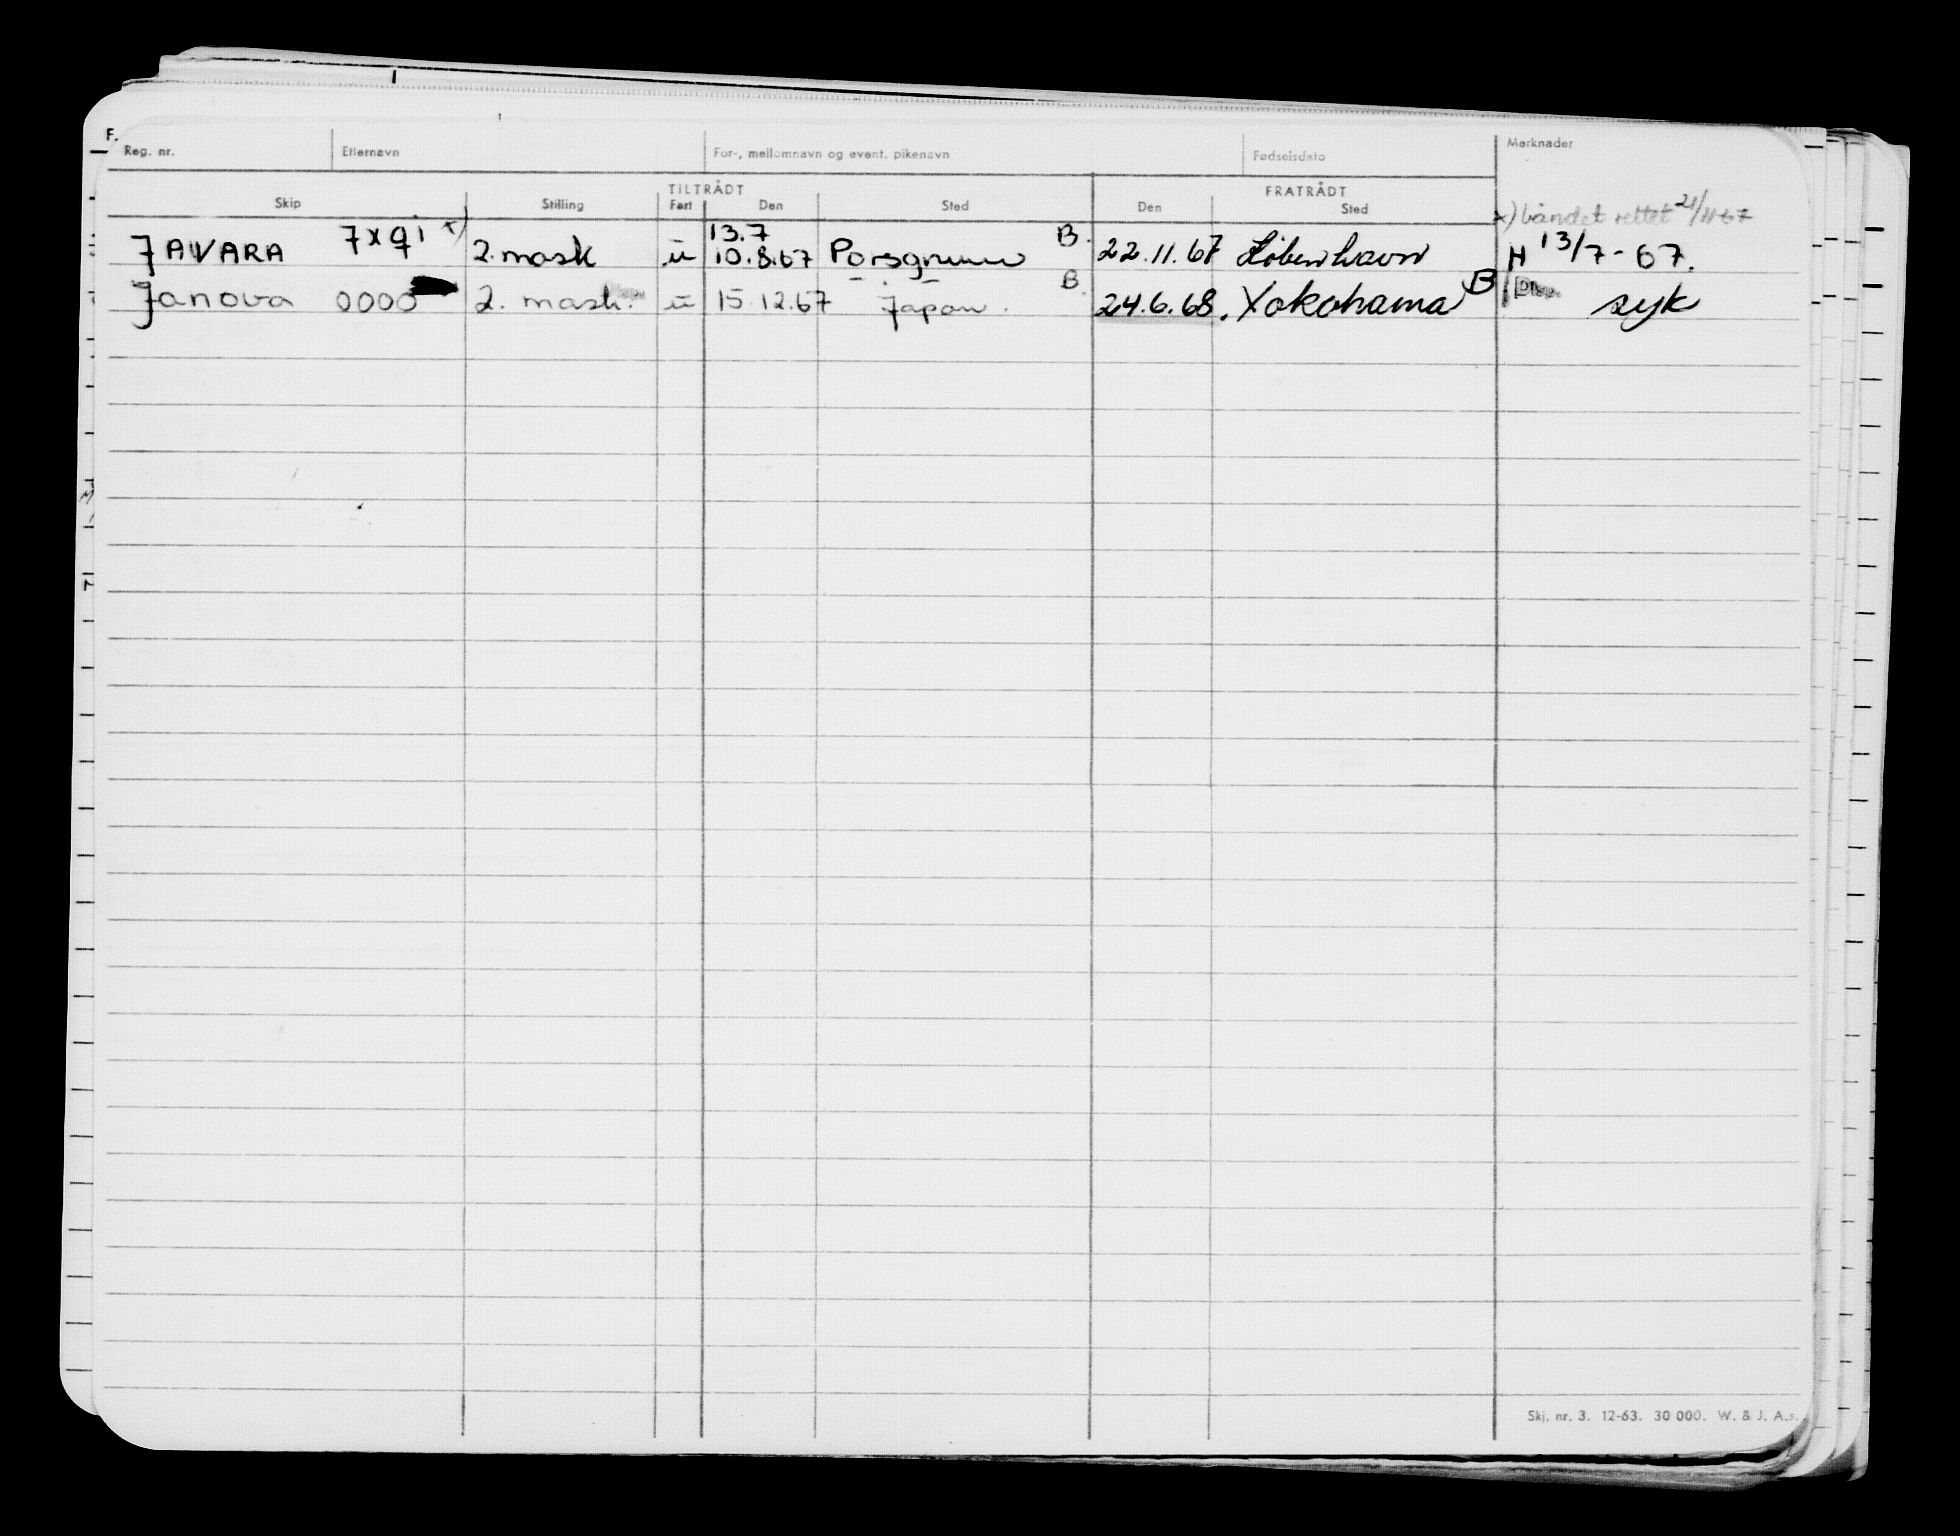 F.
Reg. nr. Etternavn For-, mellomnavn og event. pikenavn Fødselsdato Merknader
TILTRÅDT FRATRÅDT
Skip Stilling Fart Den Sted Den Sted
x) båndet rettet 21/11-67
13.7
JAVARA 7x91 x) 2. mask u 10.8.67 Porsgrunn B. 22.11.67 København H 13/7-67.
Janova 0000 2. mask. u 15.12.67 Japan. B. 24.6.68. Yokohama B syk
Skj. nr. 3. 12-63. 30 000. W. & J. A.s.